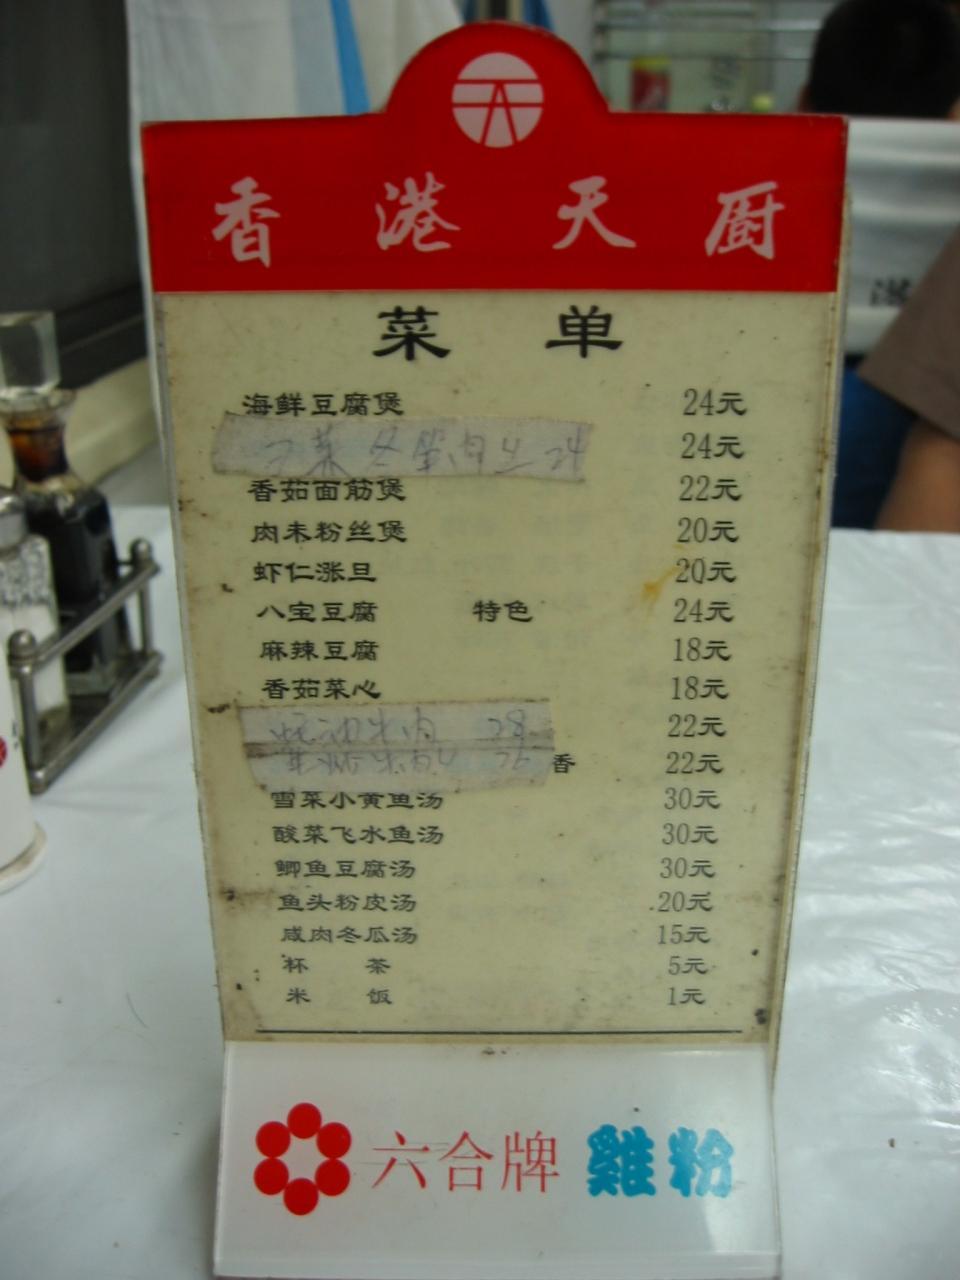 香港天厨
菜单
海鲜豆腐煲 24元
24元
香茹面筋煲 22元
肉未粉丝煲 20元
虾仁涨旦 20元
八宝豆腐 特色 24元
麻辣豆腐 18元
香茹菜心 18元
蚝油牛肉 28 22元
香 22元
雪菜小黄鱼汤 30元
酸菜飞水鱼汤 30元
鲫鱼豆腐汤 30元
鱼头粉皮汤 20元
咸肉冬瓜汤 15元
杯茶 5元
米饭 1元
六合牌 雞粉